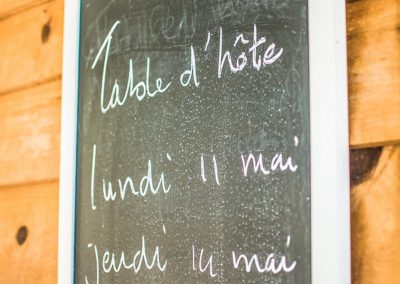 Table d'hôte
lundi 11 mai
jeudi 14 mai